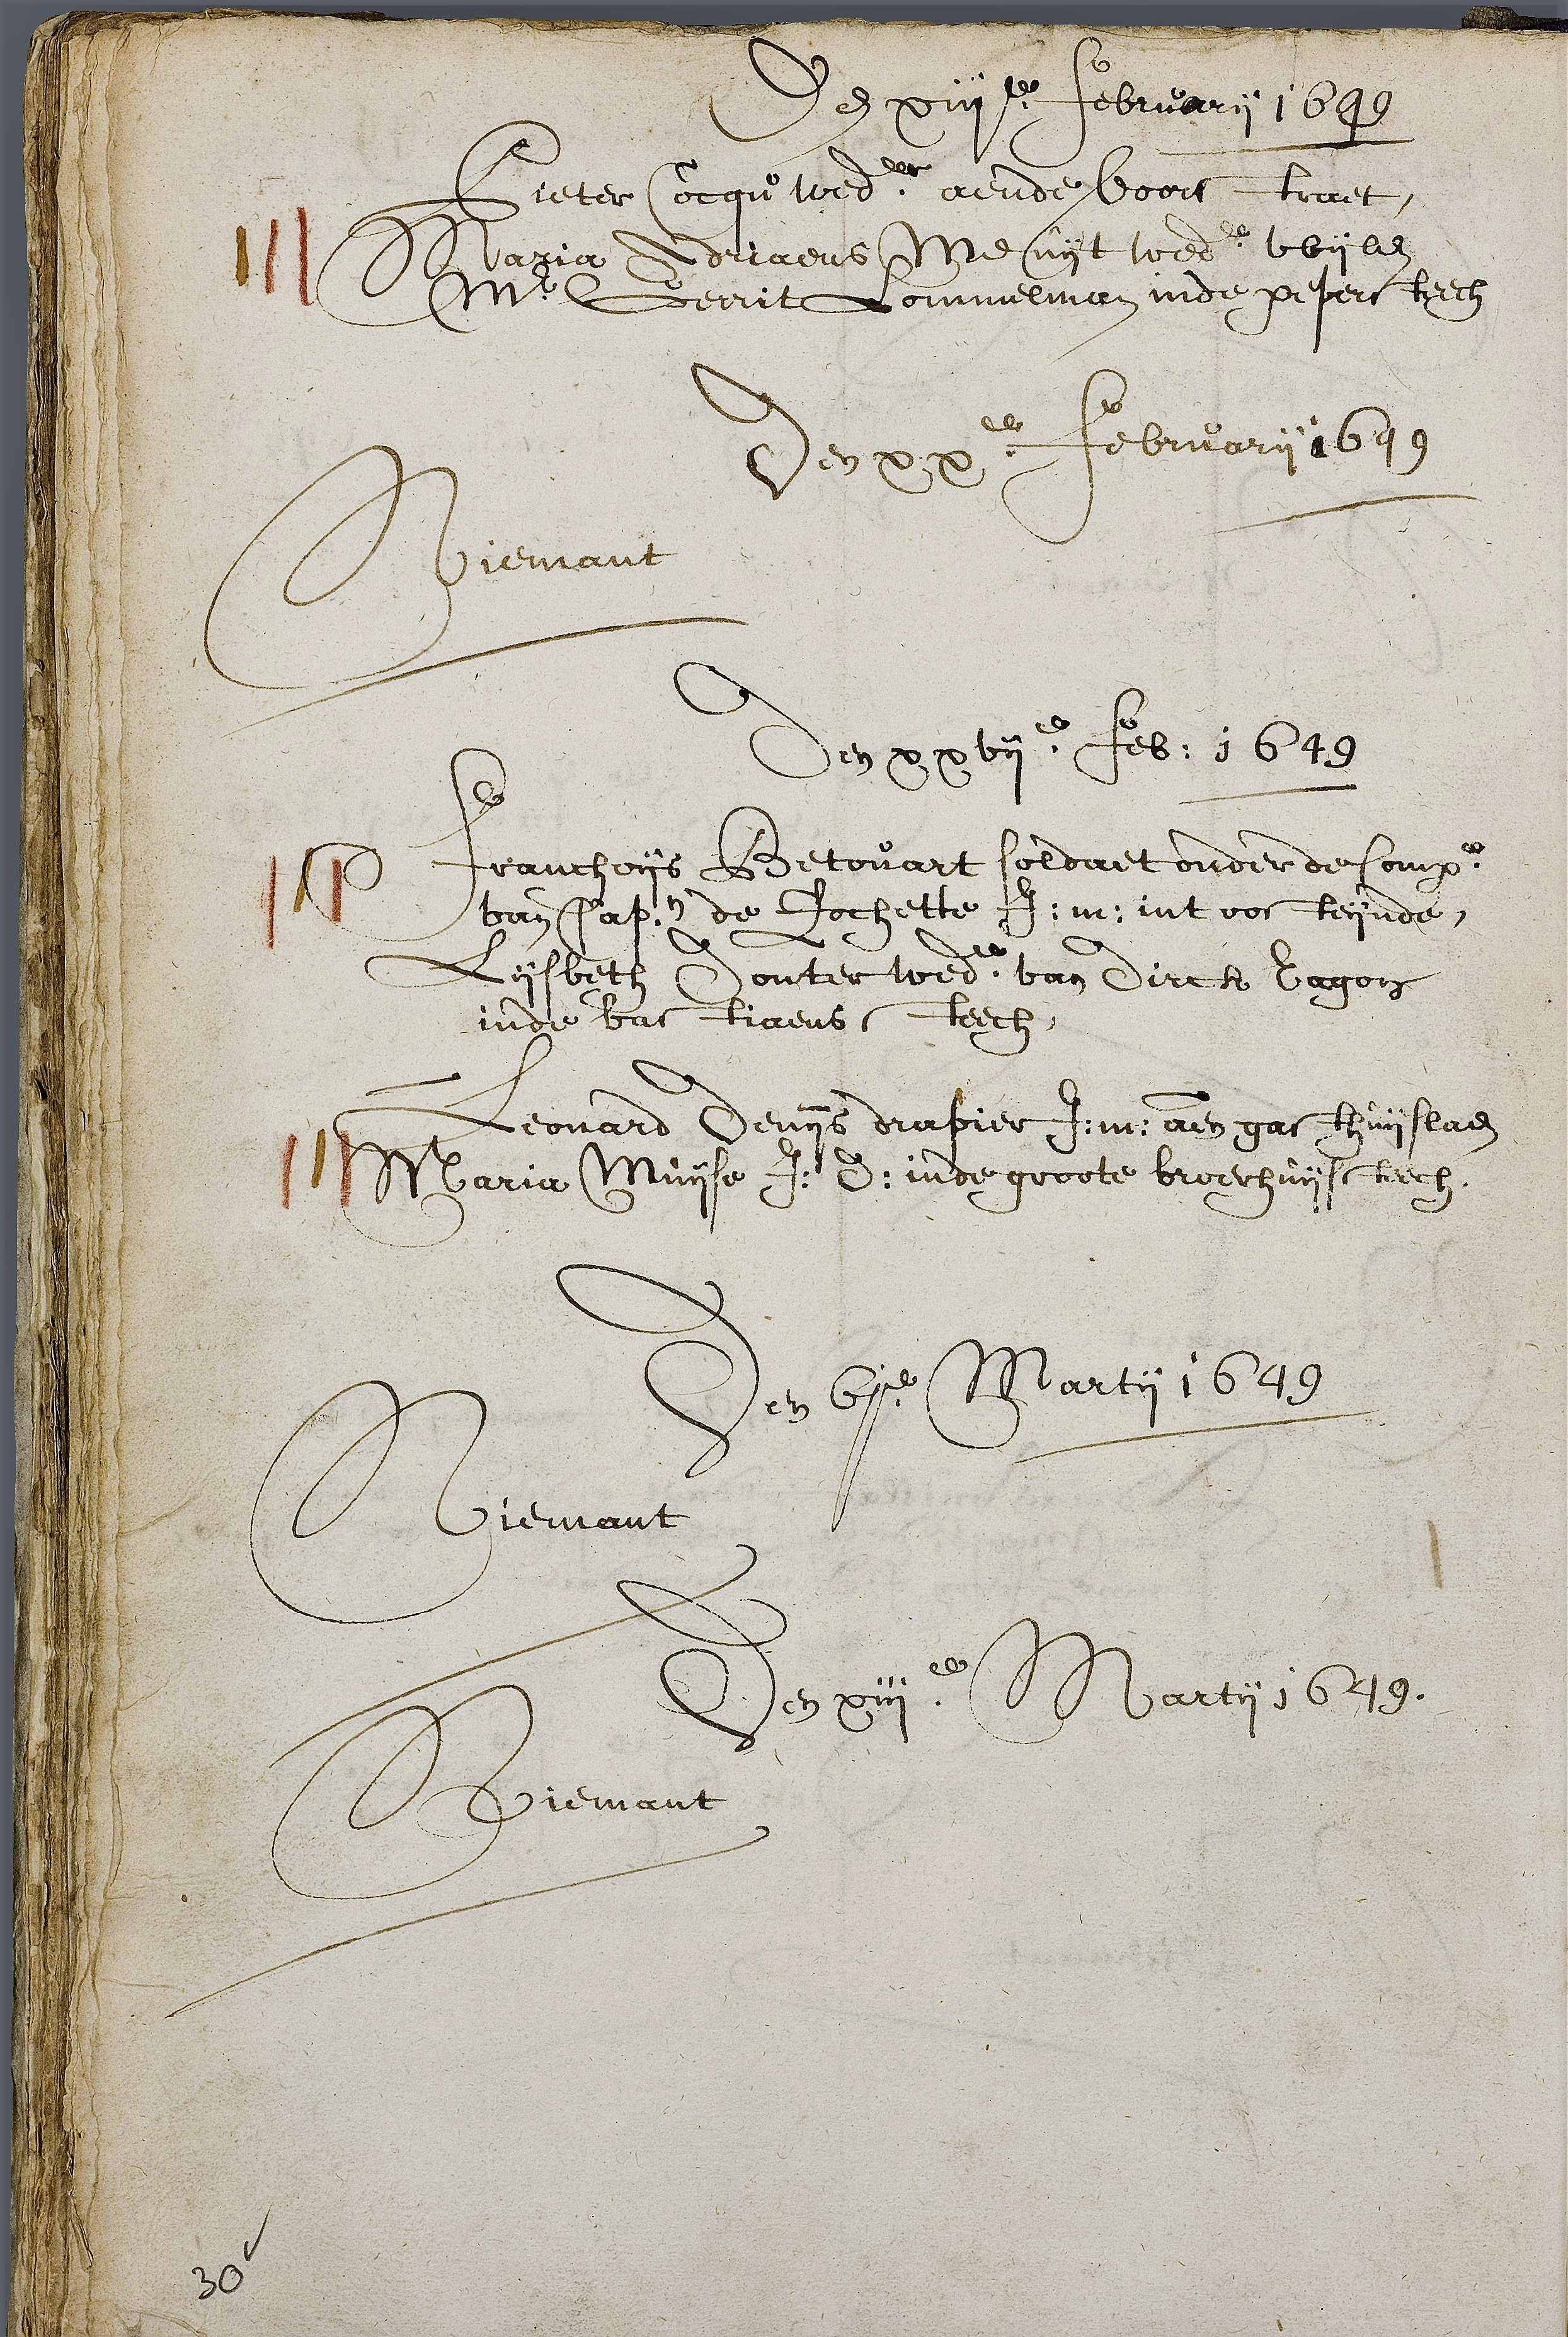 Den xiiije. februarij 1649
Pieter Cocqu wedr. aende Voorstraet,
Maria Adriaens Meuijt wede. vbijlen
Mr. Gerrit Lommelman inde pepersteech
Den xxe. februarij 1649
Niemant
Den xxvije. feb: 1649
franchoijs Betouart soldaet onder de Compe.
van Capn. de Rochette J: m: int oosteijnde,
Lijsbeth Douter wede. van Dirck
inde bastiaensteech,
Leonard Denijs drapier J: m: aen gasthuijslaen
Maria Muijse J: D: inde groote broerhuijssteech.
Den vje. Martij 1649
Niemant
Den xiije. Martij 1649.
Niemant
30v